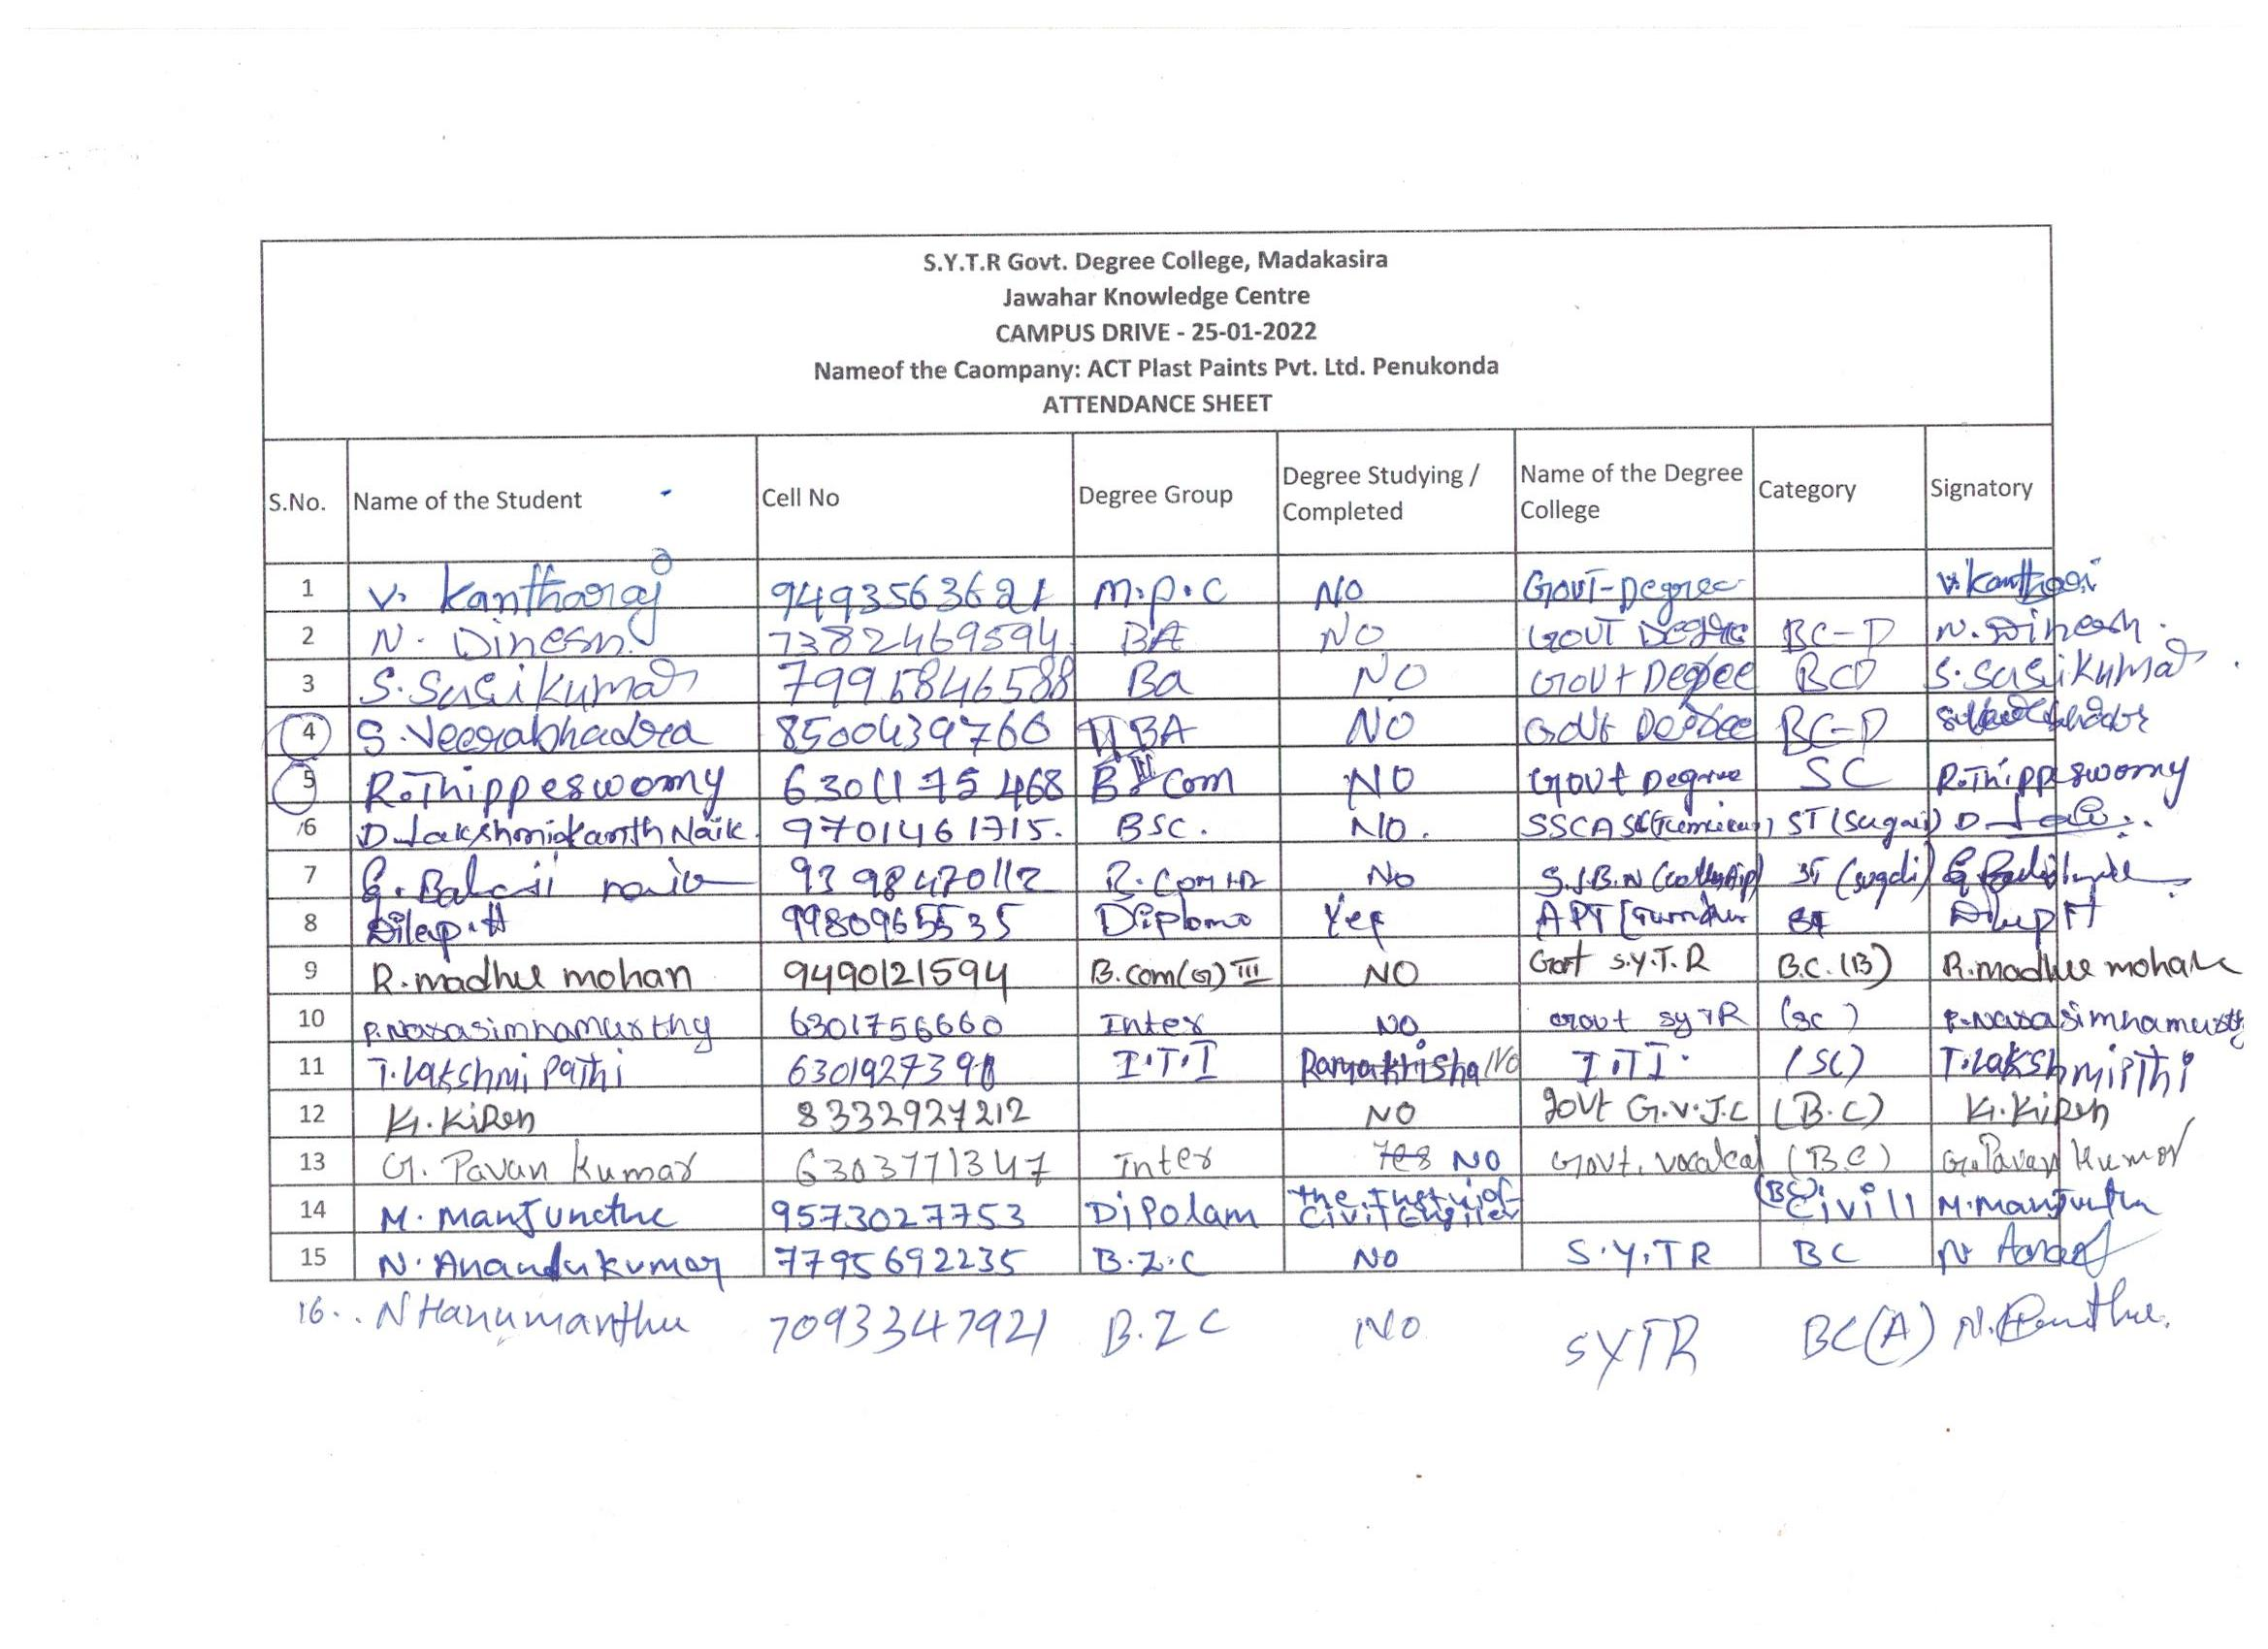 S.Y.T.R Govt. Degree College, Madakasira
Jawahar Knowledge Centre
CAMPUS DRIVE - 25-01-2022
Nameof the Caompany: ACT Plast Paints Pvt. Ltd. Penukonda
ATTENDANCE SHEET
S.No. Name of the Student Cell No Degree Group Degree Studying / Completed Name of the Degree College Category Signatory
1 V. Kantharaj 9493563621 m.p.c NO Govt-Degree V. Kantharaj
2 N. Dinesh 7382469594 BA NO Govt Degree BC-D N. Dinesh.
3 S. Sasikumar 7995846588 Ba NO Govt Degree BCD S. Sasikumar
4 S. Veerabhadra 8500439760 II BA NO Govt Degree BC-D
5 R. Thippeswomy 6301175468 B III Com NO Govt Degree SC R. Thippeswomy
6 D. Lakshmikanth Naik. 9701461715. BSC. NO. SSCASC ST (Sugali) D
7 G. Balaji naik 9398470112 B.Com No S.J.B.N ST (sugali)
8 Dileep.H 9980965535 Diplomo Yes APT Dileep H
9 R. madhu mohan 9490121594 B.com(G) III NO Govt S.Y.T.R B.C.(B) R. madhu mohan
10 P. Narasimhamurthy 6301756660 Inter NO Govt SYTR (SC) P. Narasimhamurthy
11 T. Lakshmi Pathi 6301927398 I.T.I Ramakrisha NO I.T.I. (SC) T. Lakshmipthi
12 K. Kiren 8332927212 NO govt G.V.J.C (B.C) K. Kiren
13 G. Pavan Kumar 6303771347 Inter Yes NO Govt. (B.C) G. Pavan Kumar
14 M. Manjunctha 9573027753 Dipolam the (BC) Civill M. Manjuntha
15 N. Anandukumar 7795692235 B.Z.C NO S.Y.TR BC N
16. N Hanumanthu 7093347921 B.Z C NO SYTR BC(A) N.